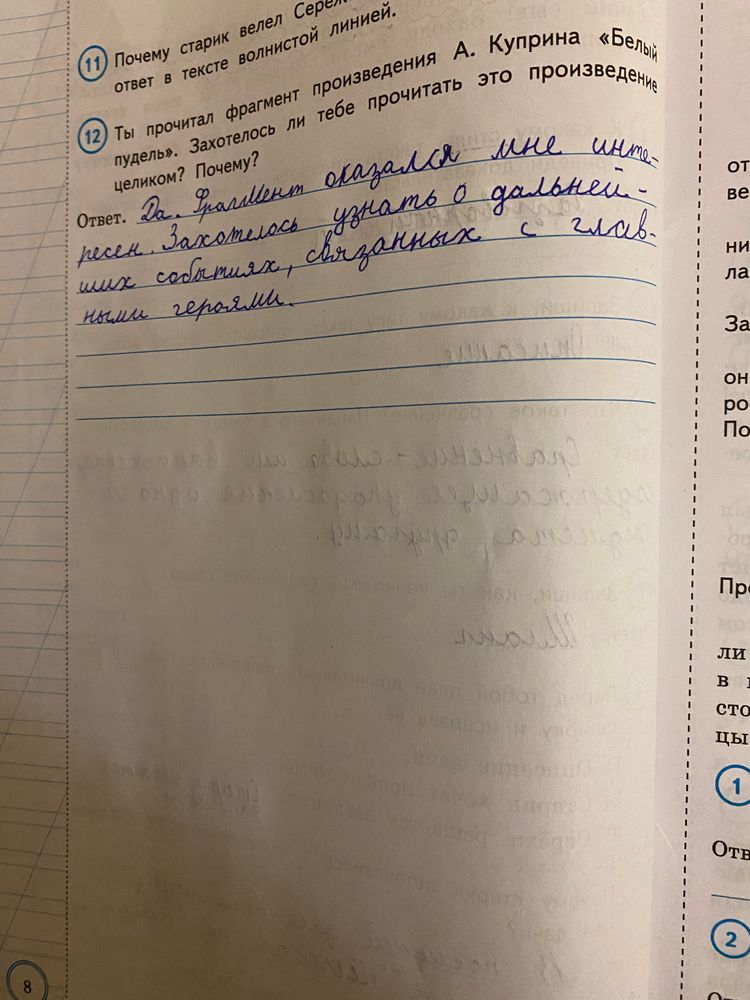 11 Почему старик велел
ответ в тексте волнистой линией.
12 Ты прочитал фрагмент произведения А. Куприна «Белый
пудель». Захотелось ли тебе прочитать это произведение
целиком? Почему?
Ответ. Да. Фрагмент оказался мне инте-
ресен. Захотелось узнать о дальней-
ших событиях, связанных с глав-
ными героями.
8
от
ве
ни
ла
За
он
ро
По
Пр
ли
в
сто
цы
1
Отв
2